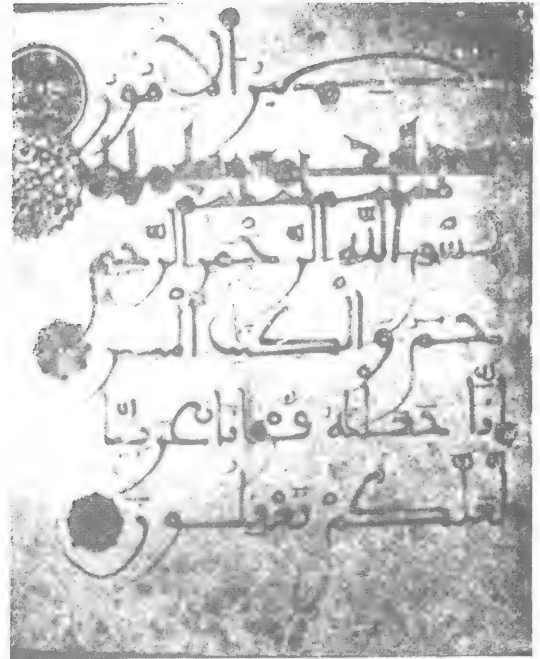 تَصِيرُ الْأُمُورُ
بِسْمِ اللَّهِ الرَّحْمَنِ الرَّحِيمِ
حمٓ وَالْكِتَبِ الْمُبِينِ
إِنَّا جَعَلْنَهُ قُرْءَانًا عَرَبِيًّا
لَّعَلَّكُمْ تَعْقِلُونَ